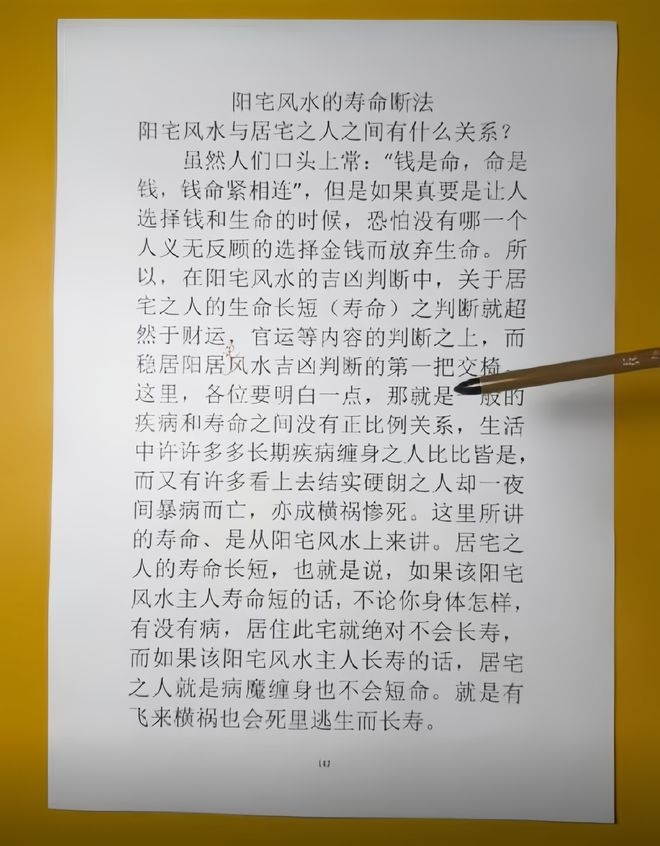 阳宅风水的寿命断法
阳宅风水与居宅之人之间有什么关系？
虽然人们口头上常：“钱是命，命是
钱，钱命紧相连”，但是如果真要是让人
选择钱和生命的时候，恐怕没有哪一个
人义无反顾的选择金钱而放弃生命。所
以，在阳宅风水的吉凶判断中，关于居
宅之人的生命长短（寿命）之判断就超
然于财运、官运等内容的判断之上，而
稳居阳居风水吉凶判断的第一把交椅。
这里，各位要明白一点，那就是一般的
疾病和寿命之间没有正比例关系，生活
中许许多多长期疾病缠身之人比比皆是，
而又有许多看上去结实硬朗之人却一夜
间暴病而亡，亦成横祸惨死。这里所讲
的寿命、是从阳宅风水上来讲。居宅之
人的寿命长短，也就是说，如果该阳宅
风水主人寿命短的话，不论你身体怎样，
有没有病，居住此宅就绝对不会长寿，
而如果该阳宅风水主人长寿的话，居宅
之人就是病魔缠身也不会短命。就是有
飞来横祸也会死里逃生而长寿。